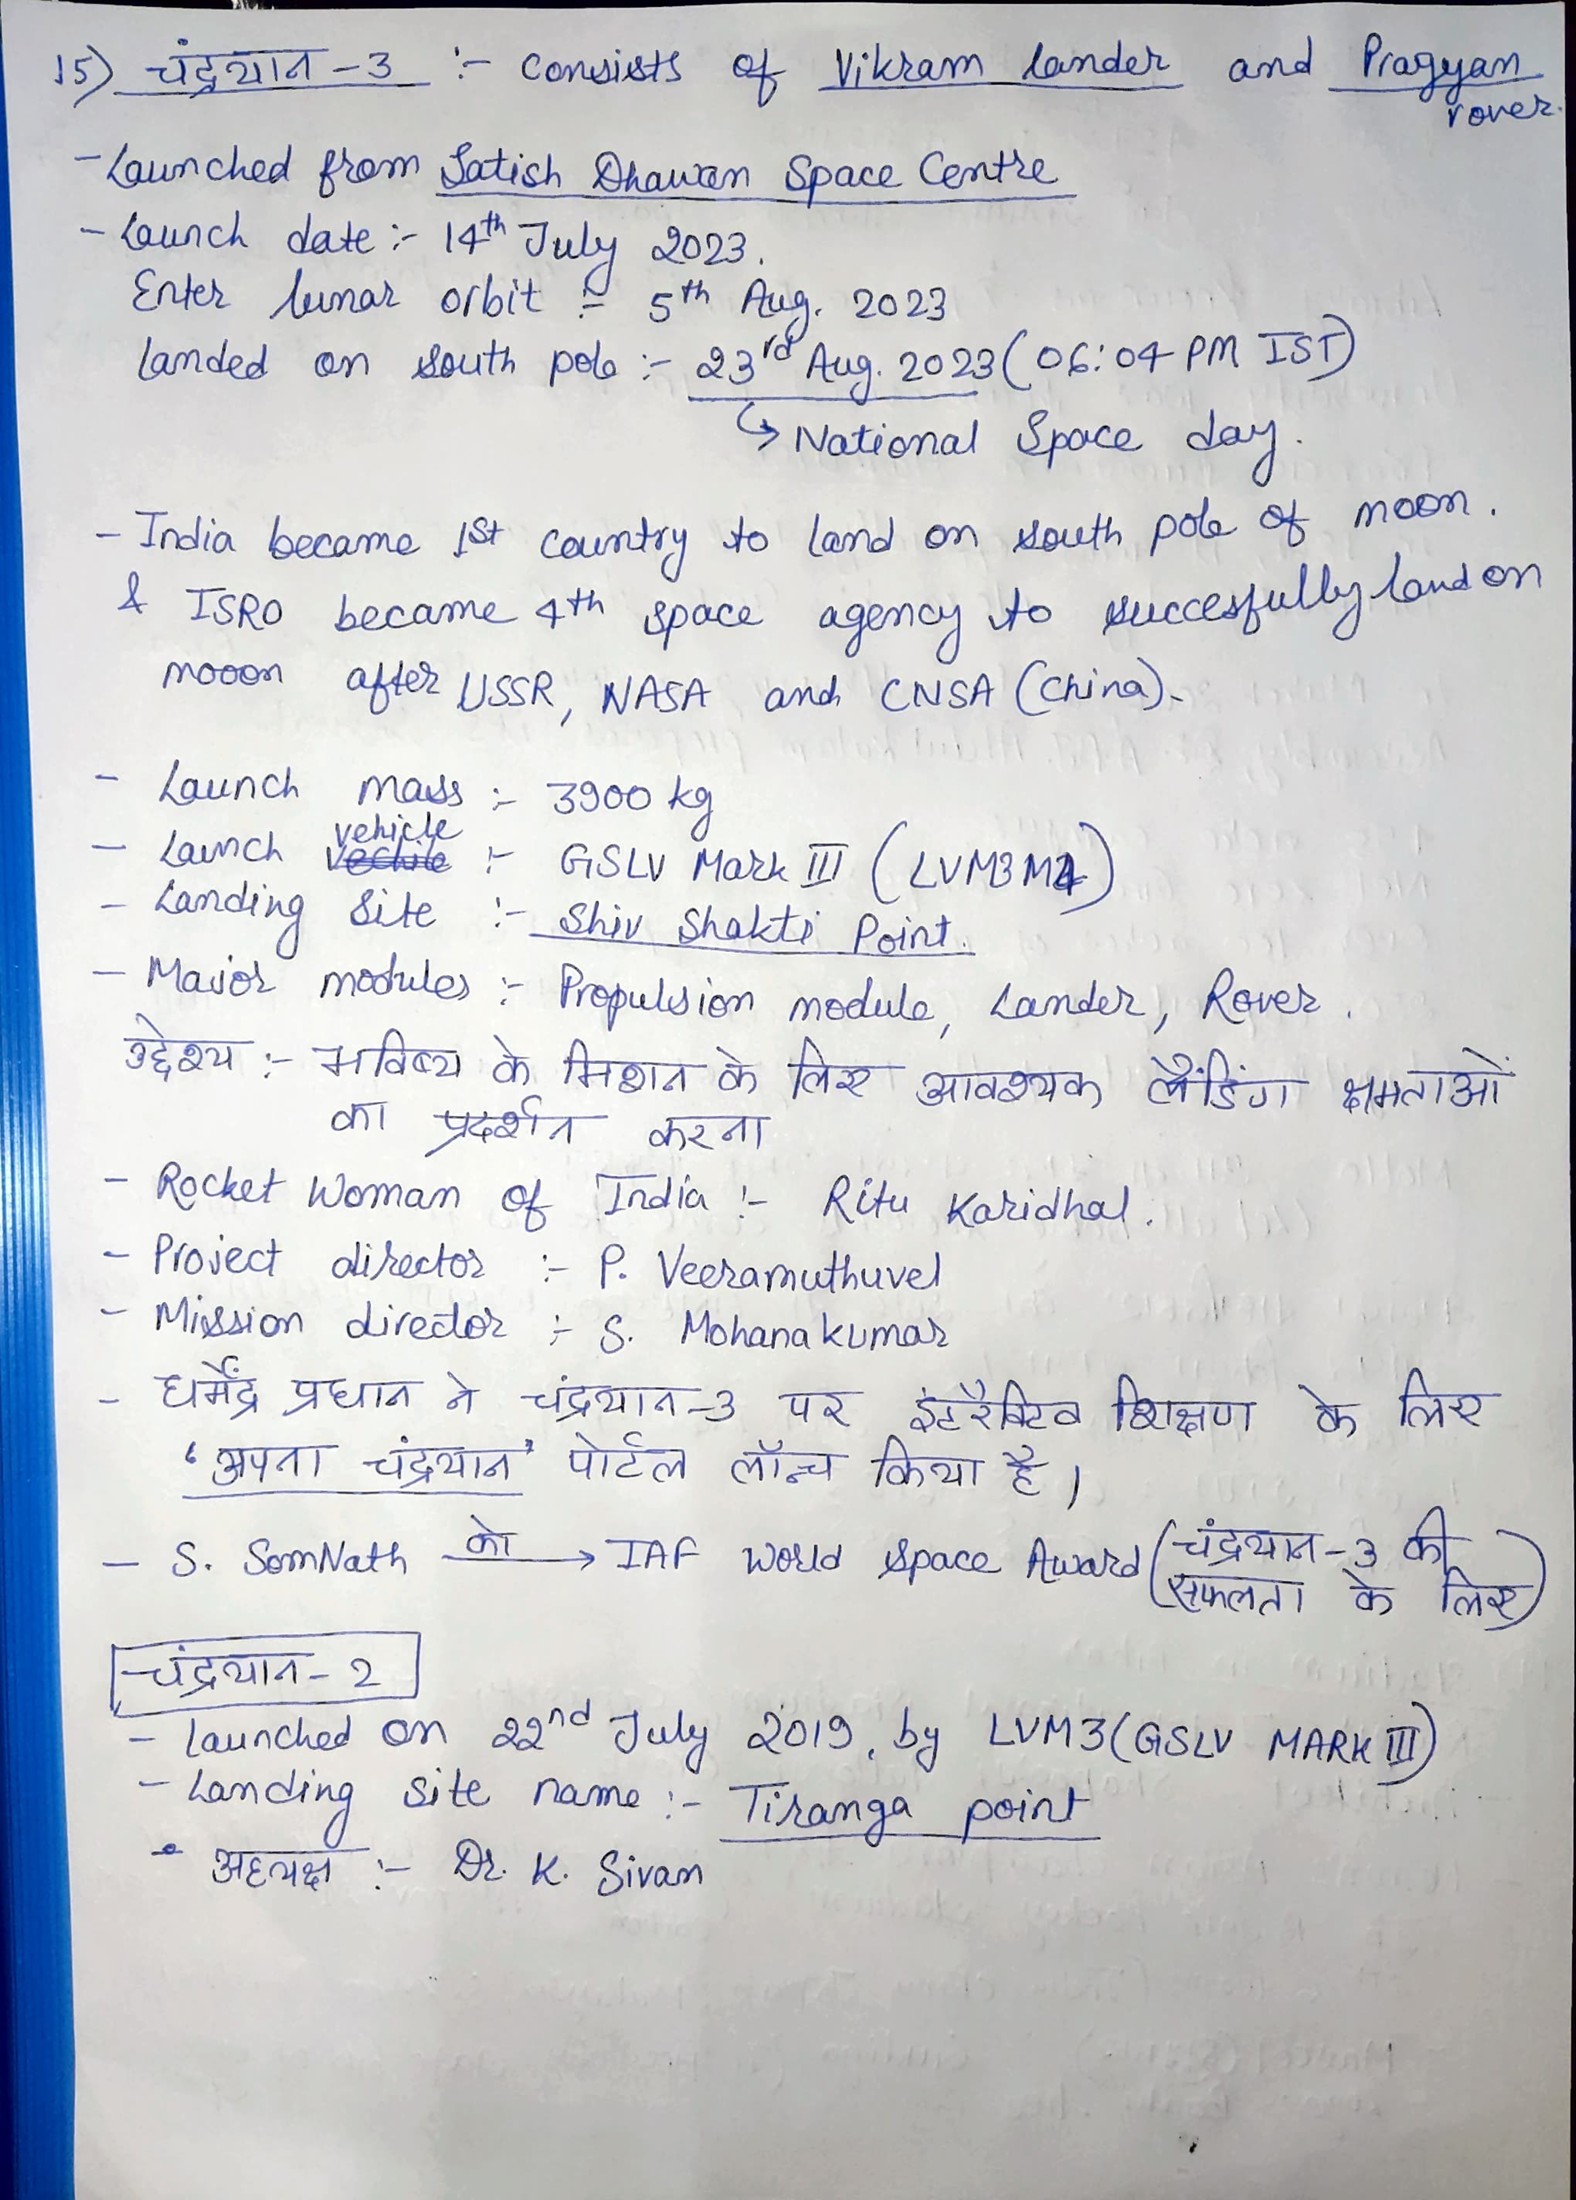 15) चंद्रयान-3 :- consists of Vikram lander and Pragyan
rover.
- Launched from Satish Dhawan Space Centre
- Launch date :- 14th July 2023.
Enter lunar orbit :- 5th Aug. 2023
landed on south pole :- 23rd Aug. 2023 (06:04 PM IST)
↳ National Space day.
- India became 1st country to land on south pole of moon.
& ISRO became 4th space agency to succesfully land on
mooon after USSR, NASA and CNSA (China).
- Launch mass :- 3900 kg
- Launch vehicle :- GSLV Mark III (LVM3 M4)
- Landing site :- Shiv Shakti Point.
- Major modules :- Propulsion module, Lander, Rover.
उद्देश्य :- भविष्य के मिशन के लिए आवश्यक लैंडिंग क्षमताओं
का प्रदर्शन करना
- Rocket Woman of India :- Ritu Karidhal.
- Project director :- P. Veeramuthuvel
- Mission director :- S. Mohanakumar
- धर्मेंद्र प्रधान ने चंद्रयान-3 पर इंटरैक्टिव शिक्षण के लिए
'अपना चंद्रयान' पोर्टल लॉन्च किया है।
- S. SomNath को → IAF World Space Award (चंद्रयान-3 की
सफलता के लिए)
चंद्रयान-2
- Launched on 22nd July 2019, by LVM3 (GSLV MARK III)
- Landing site name :- Tiranga point
• अध्यक्ष :- Dr. K. Sivan